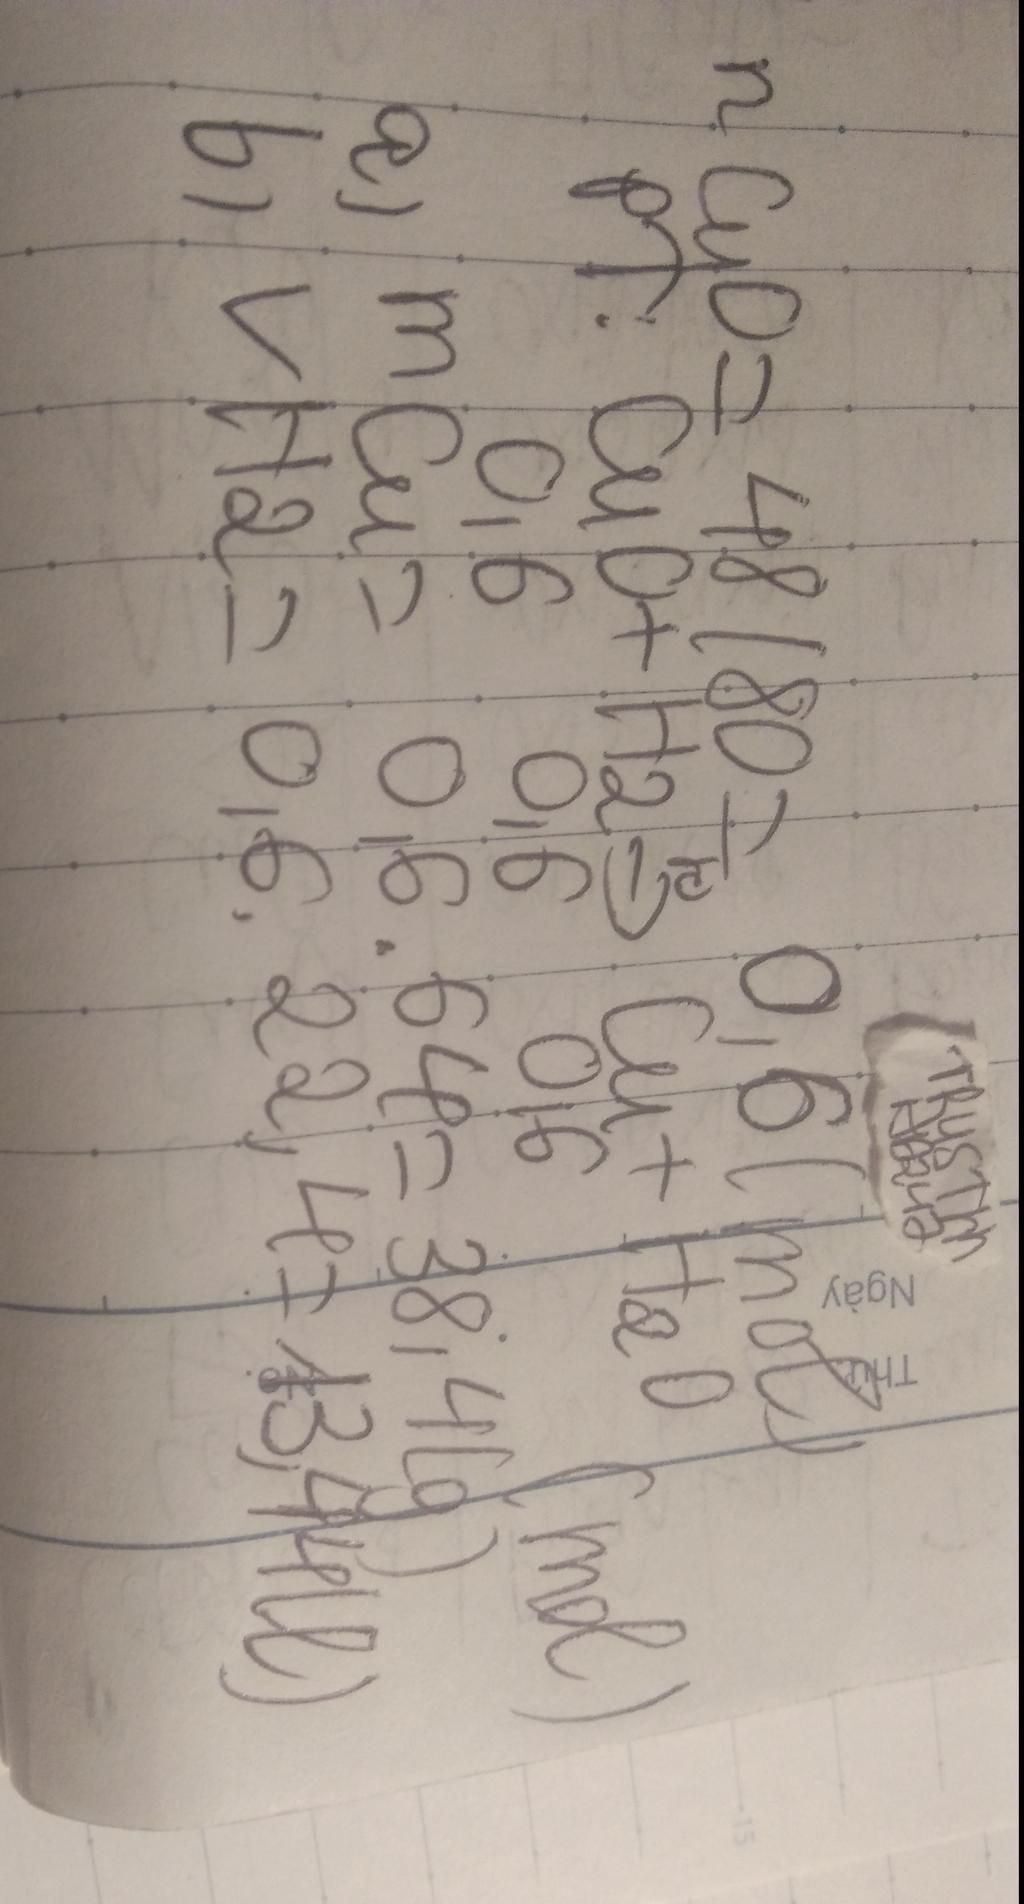 Thứ
Ngày
nCuO = 48/80 = 0,6 (mol)
pt: CuO + H2 → Cu + H2O
0,6 0,6 0,6 (mol)
a) mCu = 0,6 . 64 = 38,4 (g)
b) VH2 = 0,6 . 22,4 = 13,44 (l)